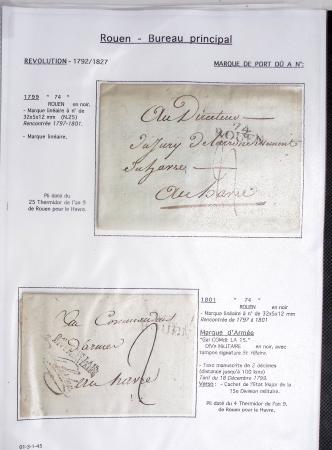 Rouen - Bureau principal
REVOLUTION - 1792/1827
MARQUE DE PORT DÛ A N°:
1799 " 74 "
ROUEN en noir.
- Marque linéaire à n° de
32x5x12 mm (N.25)
Rencontrée 1797-1801.
- Marque linéaire.
Pli daté du
25 Thermidor de l'an 9
de Rouen pour le Havre.
Au Directeur
Du Jury
Du havre
Au havre
74
ROUEN
Au Commandant
D'armes
au havre
2
1801 " 74 "
ROUEN en noir
- Marque linéaire à n° de 32x5x12 mm
Rencontrée de 1797 à 1801
Marque d'Armée
"Gal COMdt LA 15."
DIVn MILITAIRE en noir, avec
tampon signature St Hilaire.
- Taxe manuscrite de 2 décimes
(distance jusqu'à 100 kms)
Tarif du 18 Décembre 1799.
Verso : - Cachet de l'Etat Major de la
15e Division militaire.
Pli daté du 4 Thermidor de l'an 9,
de Rouen pour le Havre.
01-3-1-45